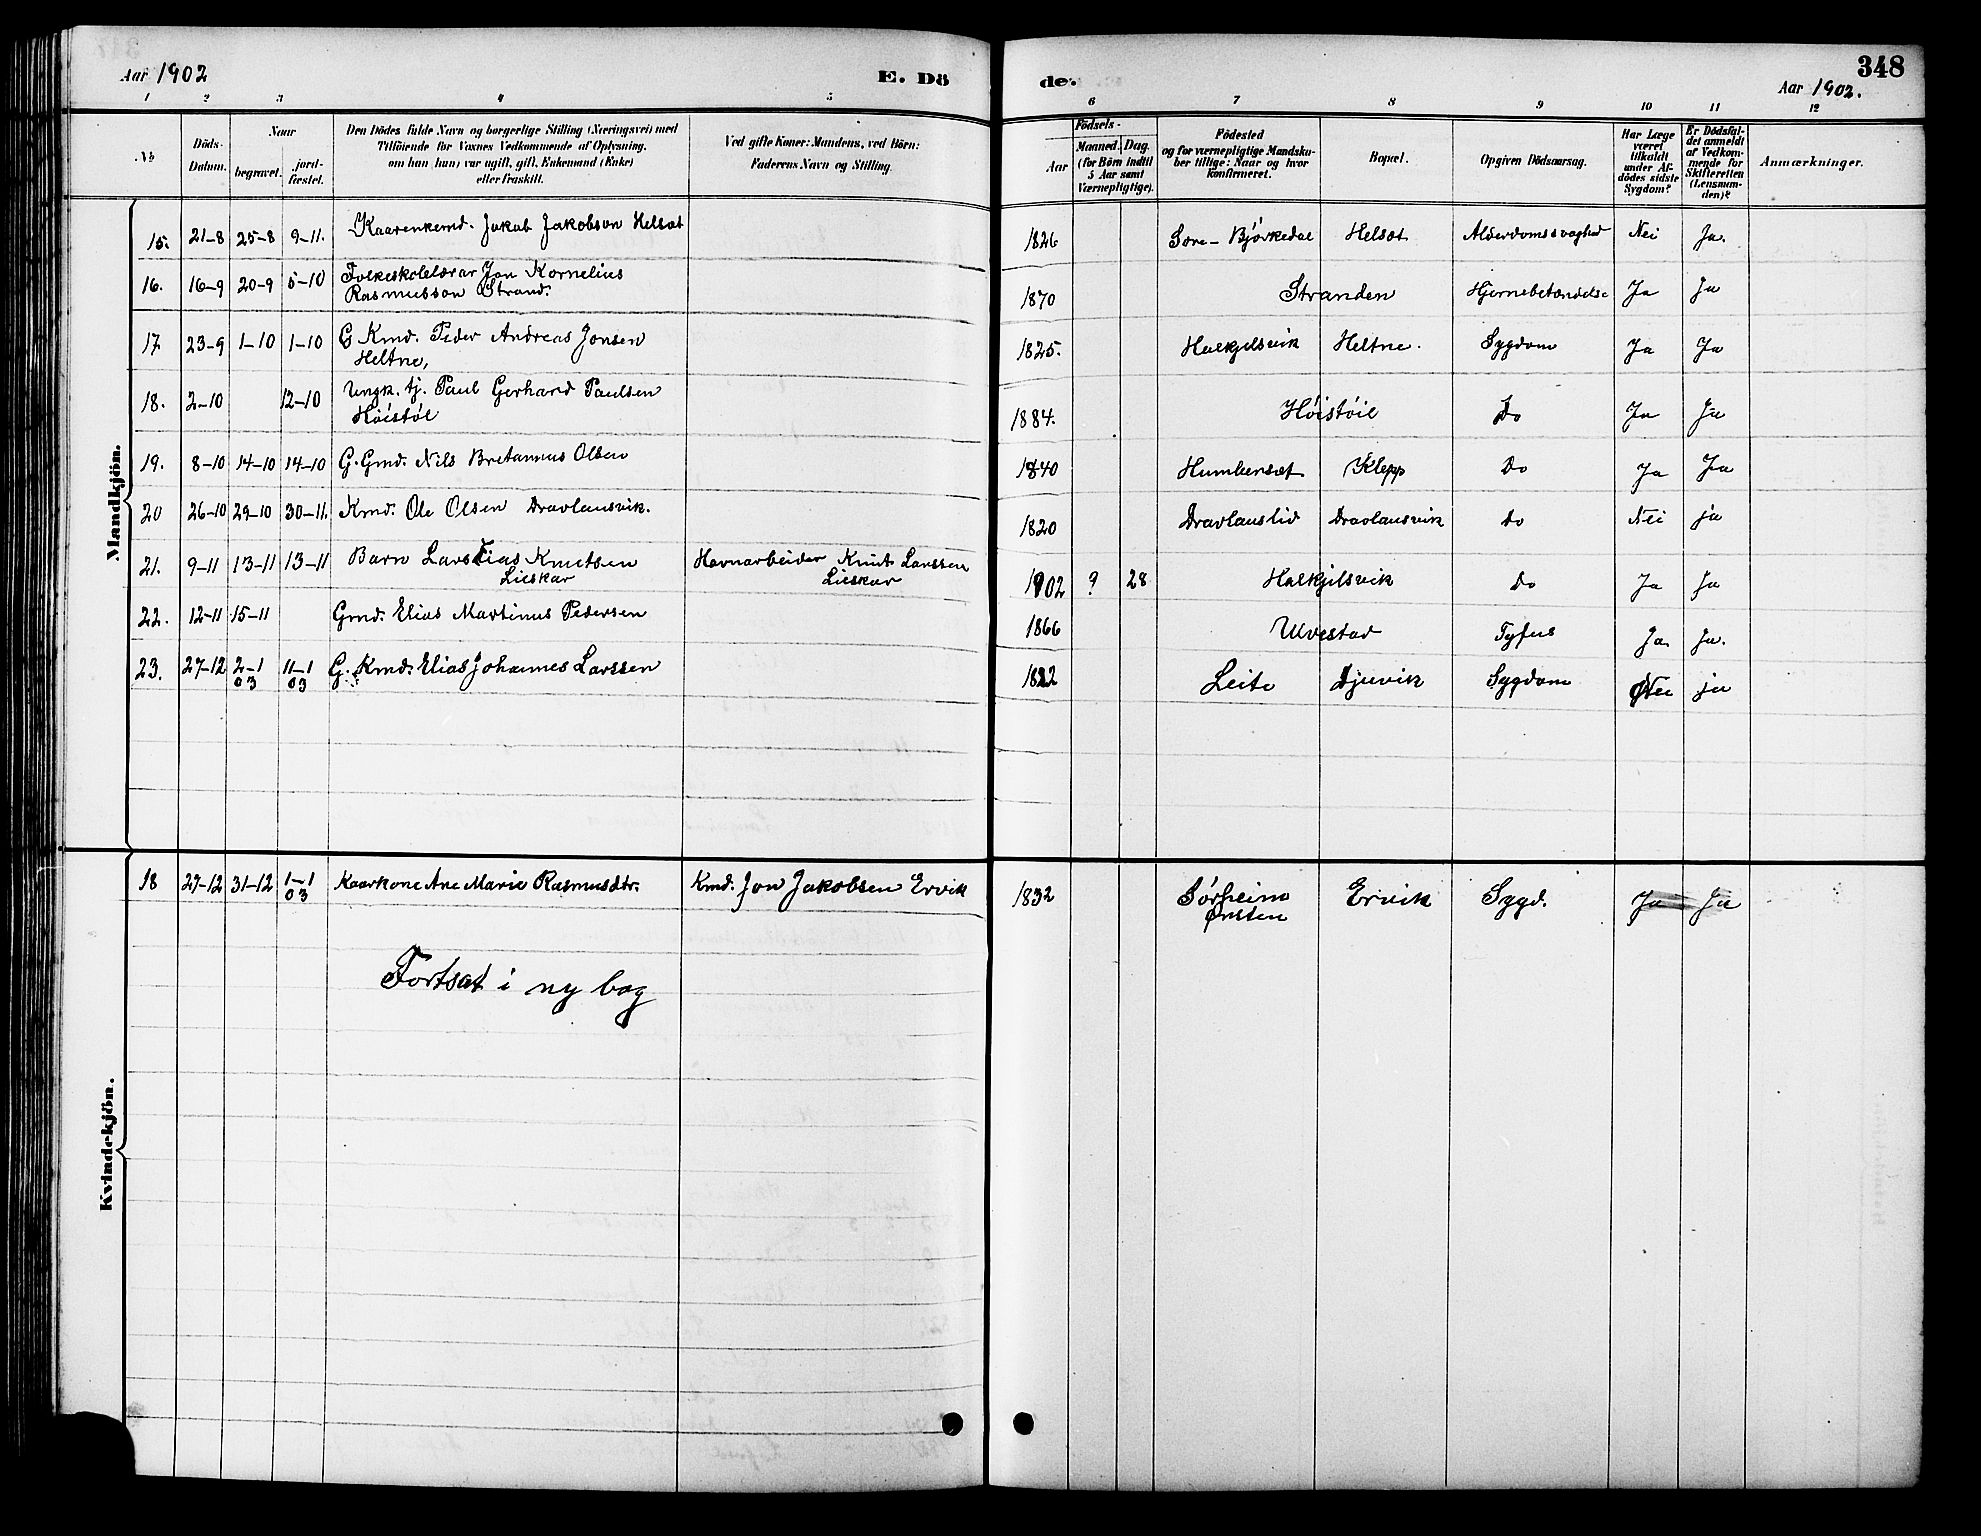 Aar 1902
E. Dö
de.
348
Aar 1902.
1 2 3 4 5 6 7 8 9 10 11 12
No
Döds-Datum.
Naar
begravet.
jord-fæstet.
Den Dödes fulde Navn og borgerlige Stilling (Næringsvei) med
Tilföiende for Voxnes Vedkommende af Oplysning,
om han (hun) var ugift, gift, Enkemand (Enke)
eller fraskilt.
Ved gifte Koner: Mandens, ved Börn:
Faderens Navn og Stilling.
Födsels-
Aar
Maaned. Dag.
(for Börn indtil
5 Aar samt
Værnepligtige).
Födested
og for værnepligtige Mandsku-
ber tillige: Naar og hvor
konfirmeret.
Bopæl.
Opgiven Dödsaarsag.
Har Læge
været
tilkaldt
under Af-
dödes sidste
Sygdom?
Er Dödsfal-
det anmeldt
af Vedkom-
mende for
Skifteretten
(Lensman-
den)?
Anmærkninger.
Mandkjön.
15. 21-8 25-8 9-11. Kaarenkemd. Jakob Jakobson Helset 1826 Søre-Bjørkedal Helset Alderdomssvaghed Nei Ja.
16. 16-9 20-9 5-10 Folkeskolelærar Jon Kornelius
Rasmusson Strand. 1870 Stranden Hjernebetændelse Ja Ja
17. 23-9 1-10 1-10 G Kmd. Peder Andreas Jonsen
Heltne, 1825. Halkjelsvik Heltne. Sygdom Ja Ja
18. 2-10 12-10 Ungk. tj. Paul Gerhard Paulsen
Høistøl 1884. Høistøil Do Ja Ja
19. 8-10 14-10 14-10 G. Gmd. Nils Bretannus Olsen 1840 Humbørset Klepp Do Ja Ja
20 26-10 29-10 30-11. Kmd. Ole Olsen Dravlausvik. 1820 Dravlauslid Dravlausvik Do Nei ja
21. 9-11 13-11 13-11 Barn Lars Knutsen
Lieskar Havnarbeider Knut Larssen
Lieskar 1902 9 28 Halkjelsvik Do Ja Ja
22. 12-11 15-11 Gmd. Elias Martinus Pedersen 1866 Ulvestad Tyfus Ja. Ja.
23. 27-12 2-1 03 11-1 03 G. Kmd. Elias Johannes Larssen 1822 Leite Djuvik Sygdom Nei ja
Kvindekjön.
18 27-12 31-12 1-1 03 Kaarkone Ane Marie Rasmusdtr. Kmd. Jon Jakobsen Ervik 1832 Sørheim
Ørsten Ervik Sygd. Ja Ja
Fortsat i ny bog